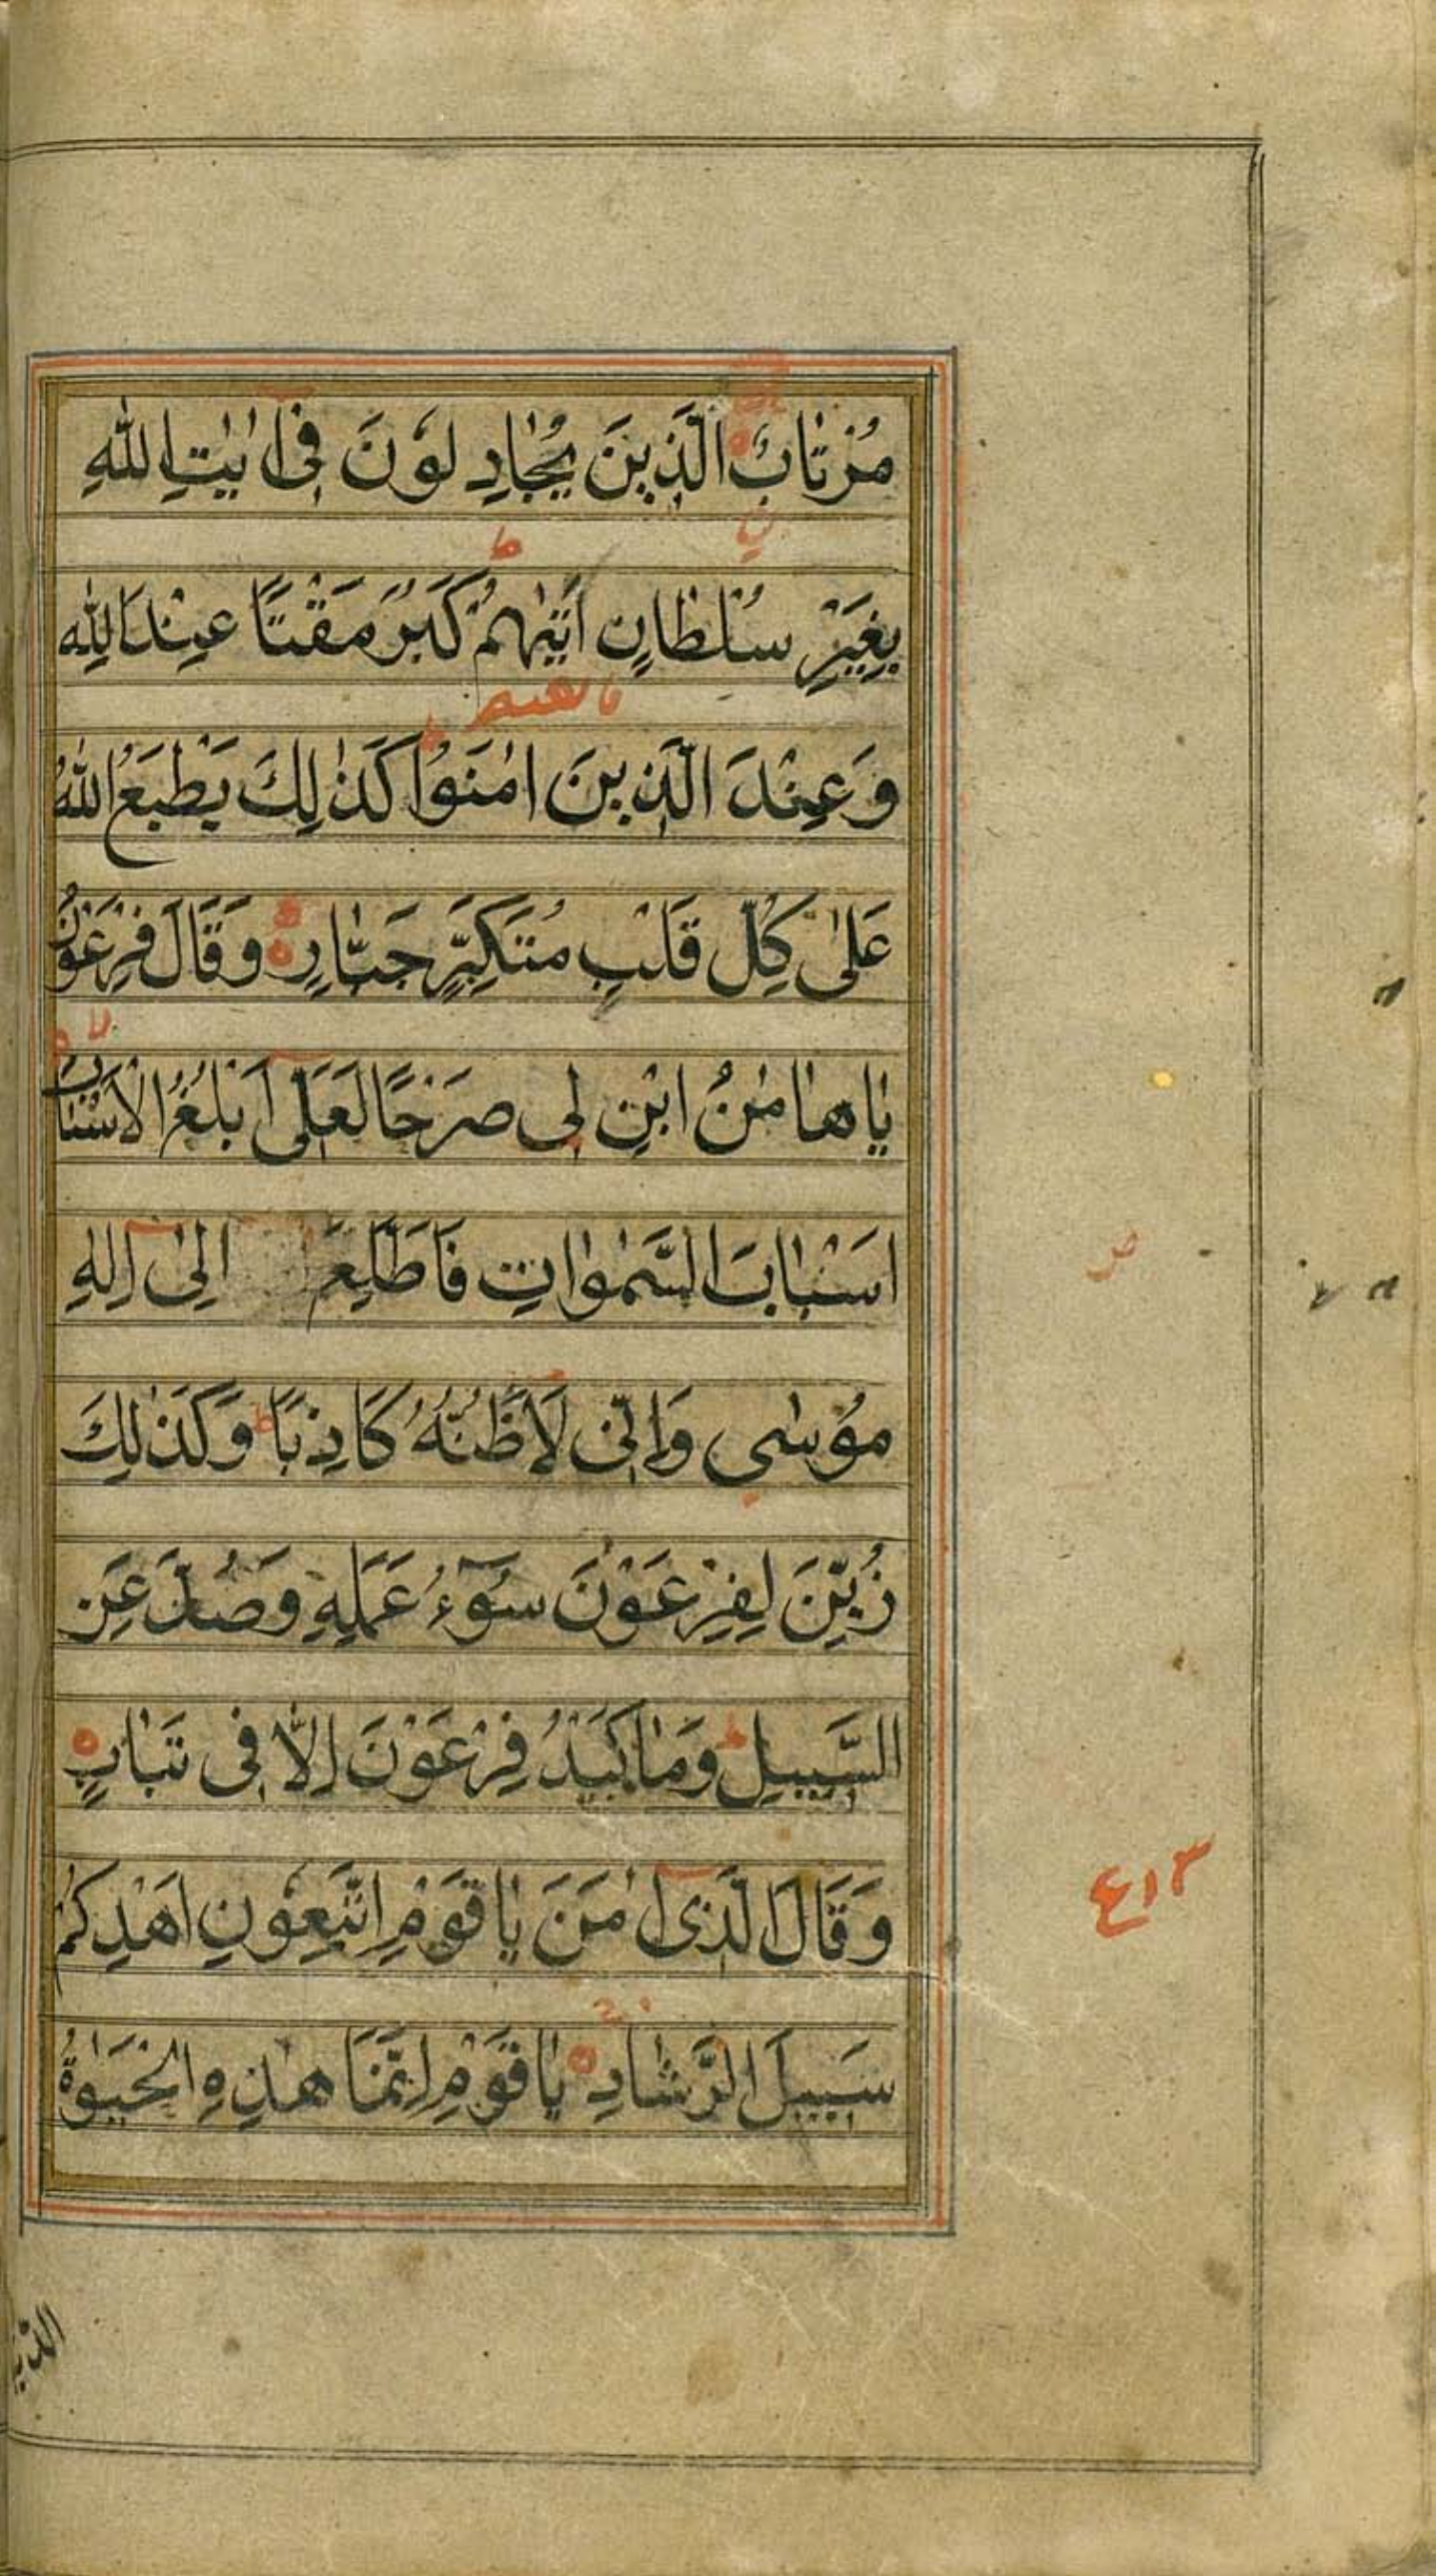 مُرْتَابٌ الَّذِينَ يُجَادِلُونَ فِىٓ اٰيٰتِ اللّٰهِ
بِغَيْرِ سُلْطَانٍ اَتٰيهُمْ كَبُرَ مَقْتًا عِنْدَ اللّٰهِ
وَعِنْدَ الَّذِينَ اٰمَنُوا كَذٰلِكَ يَطْبَعُ اللّٰهُ
عَلٰى كُلِّ قَلْبِ مُتَكَبِّرٍ جَبَّارٍ وَقَالَ فِرْعَوْنُ
يٰاهٰامٰنُ ابْنِ لِى صَرْحًا لَعَلِّىٓ اَبْلُغُ الْاَسْبَابَ
اَسْبَابَ السَّمٰوَاتِ فَاَطَّلِعَ اِلٰىٓ اِلٰهِ
مُوسٰى وَاِنِّى لَاَظُنُّهُ كَاذِبًا ط وَكَذٰلِكَ
زُيِّنَ لِفِرْعَوْنَ سُوٓءُ عَمَلِهِ وَصُدَّ عَنِ
السَّبِيلِ ط وَمَا كَيْدُ فِرْعَوْنَ اِلَّا فِى تَبَابٍ
وَقَالَ الَّذِىٓ اٰمَنَ يٰاقَوْمِ اتَّبِعُونِ اَهْدِكُمْ
٤١٣
سَبِيلَ الرَّشَادِ يٰاقَوْمِ اِنَّمَا هٰذِهِ الْحَيٰوةُ